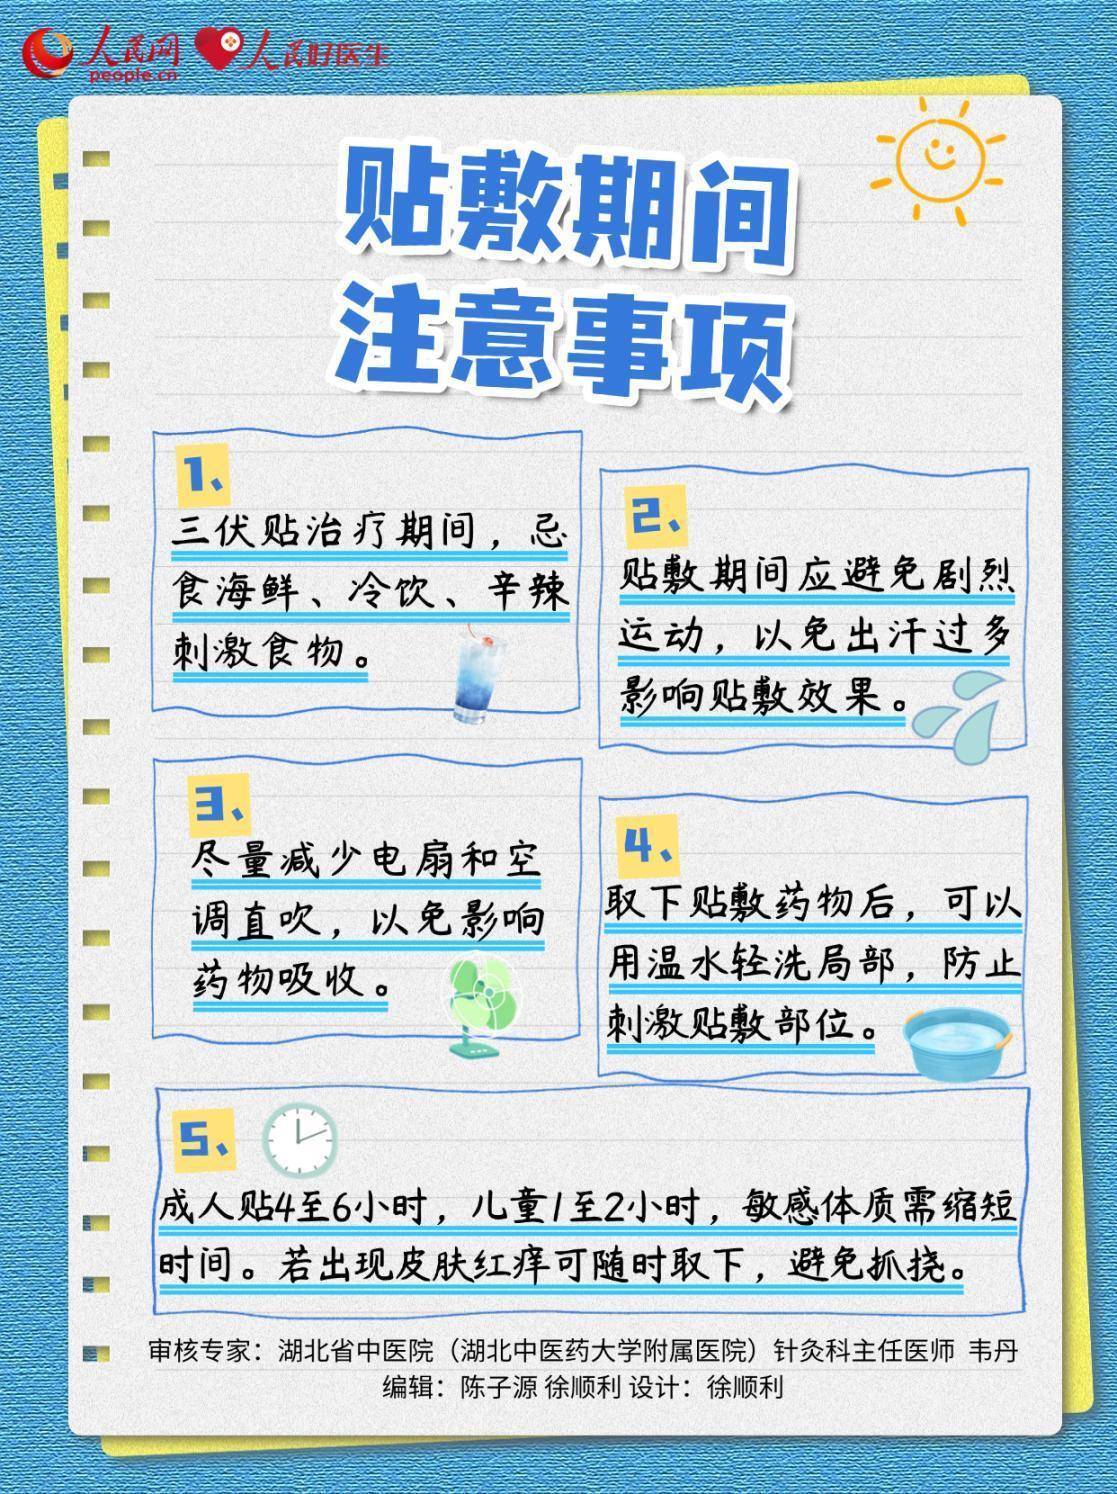 人民网
people.cn
人民好医生
贴敷期间
注意事项
1、
三伏贴治疗期间，忌
食海鲜、冷饮、辛辣
刺激食物。
2、
贴敷期间应避免剧烈
运动，以免出汗过多
影响贴敷效果。
3、
尽量减少电扇和空
调直吹，以免影响
药物吸收。
4、
取下贴敷药物后，可以
用温水轻洗局部，防止
刺激贴敷部位。
5、
成人贴4至6小时，儿童1至2小时，敏感体质需缩短
时间。若出现皮肤红痒可随时取下，避免抓挠。
审核专家：湖北省中医院（湖北中医药大学附属医院）针灸科主任医师 韦丹
编辑：陈子源 徐顺利 设计：徐顺利